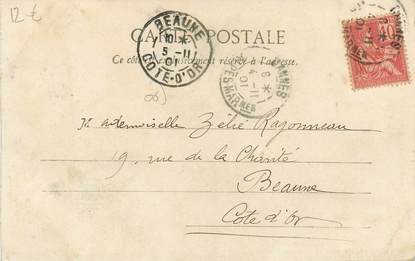 12 €
CARTE POSTALE
Ce côté est exclusivement réservé à l'adresse.
BEAUNE
10 *
5 -11
01
COTE-D'OR
6 *
4 -11
01
DES MARNES
10
Mademoiselle Zélie Ragonneau
19, rue de la Charité
Beaune
Côte d'Or